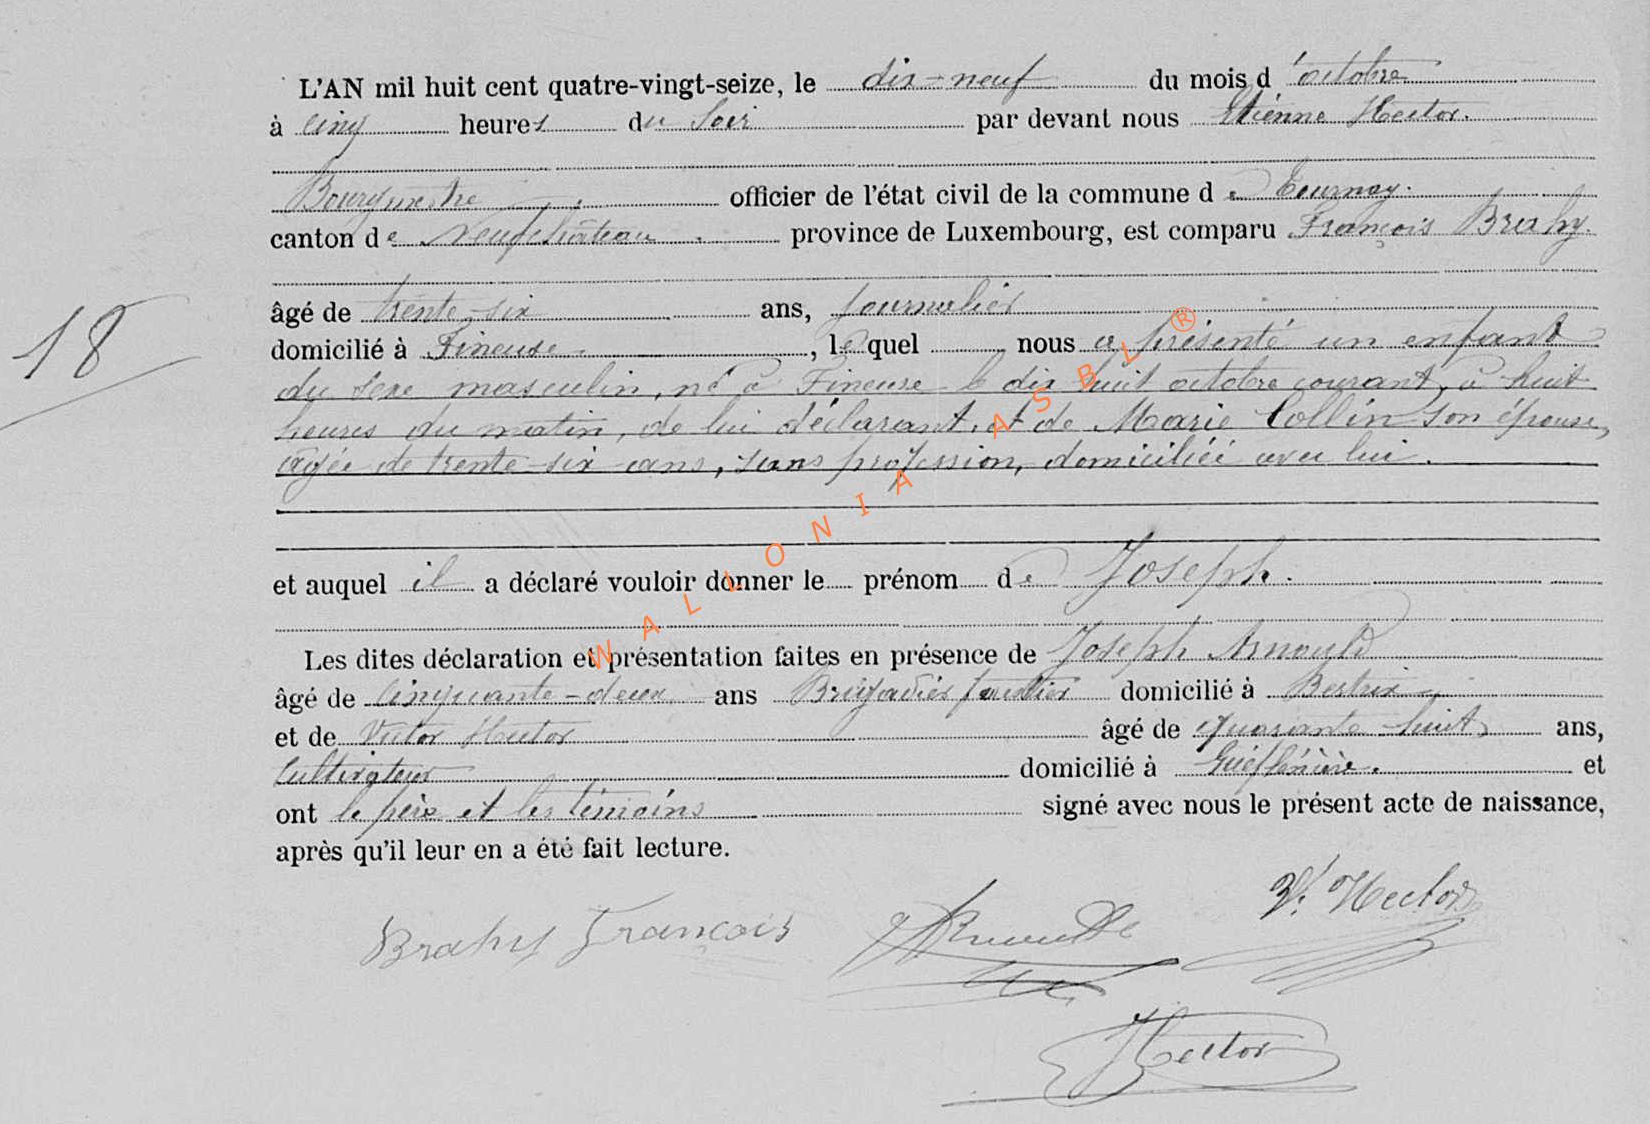 L'AN mil huit cent quatre-vingt-seize, le dix-neuf du mois d'octobre
à cinq heures du soir par devant nous Etienne Hector.
Bourgmestre officier de l'état civil de la commune de Tournay.
canton de Neufchâteau. province de Luxembourg, est comparu François Brahy.
âgé de trente-six ans, journalier
18
domicilié à Fineuse, lequel nous a présenté un enfant
du sexe masculin, né à Fineuse le dix huit octobre courant, à huit
heures du matin, de lui déclarant, et de Marie Collin son épouse,
âgée de trente-six ans, sans profession, domiciliée avec lui.
et auquel il a déclaré vouloir donner le prénom de Joseph.
Les dites déclaration et présentation faites en présence de Joseph Arnould
âgé de cinquante-deux ans Brigadier forestier domicilié à Bertrix
et de Victor Hector âgé de quarante-huit ans,
cultivateur domicilié à et
ont le père et les témoins signé avec nous le présent acte de naissance,
après qu'il leur en a été fait lecture.
Brahy Francois
V. Hector
Hector
WALLONIA ASBL ®